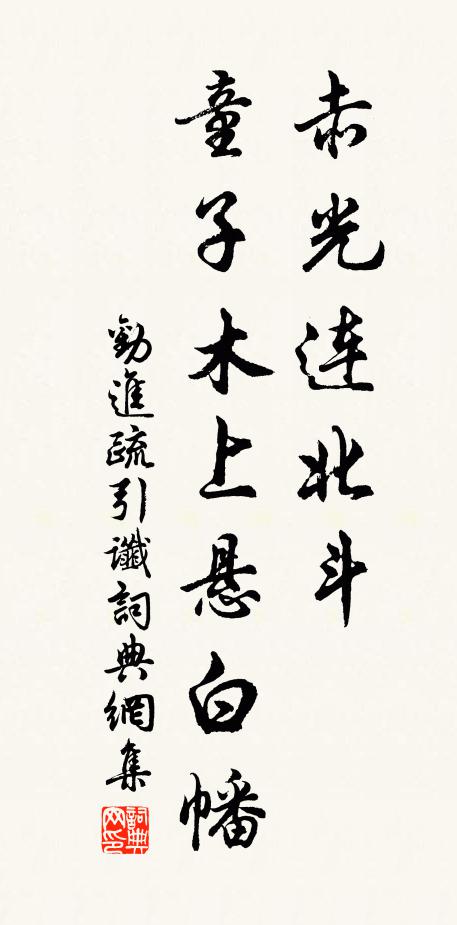 赤光連北斗
童子木上悬白幡
勸進疏引讖詞典網集
詞典网印